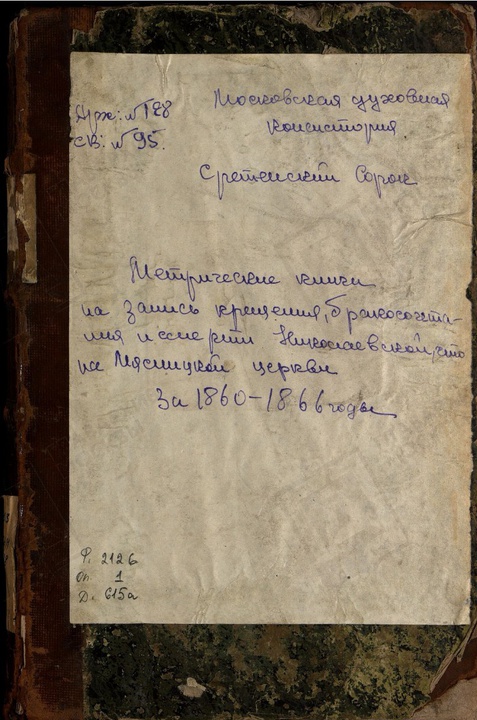 Арх: № 128
св: № 95.
Московская духовная
консистория.
Сретенский Сорок
Метрические книги
на запись крещения, бракосочета-
ния и смерти Николаевской, что
на Мясницкой церкви
За 1860-1866 годы
Ф. 2126
Оп. 1
Д. 615а